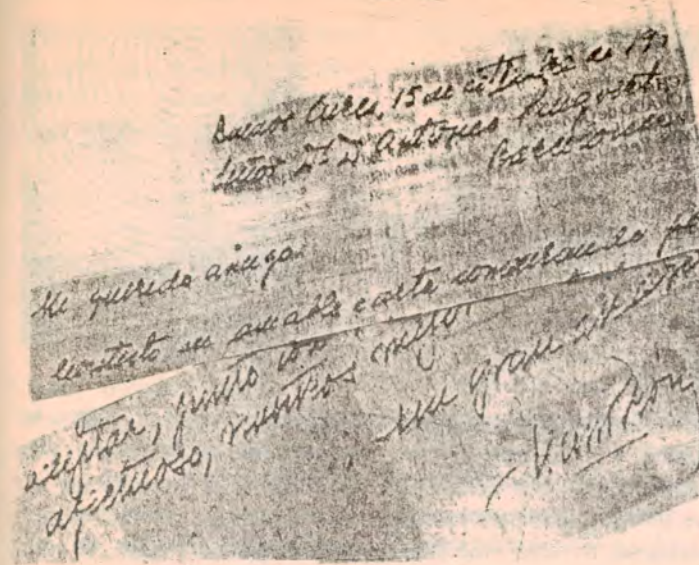 Buenos Aires, 15 de setiembre de 197
Señor Dr. D. Antonio Puigvert
Barcelona
Mi querido amigo:
Contesto su amable carta comenzando
aceptar, junto con
afectuoso, nuestros mejor
un gran
Juan Perón